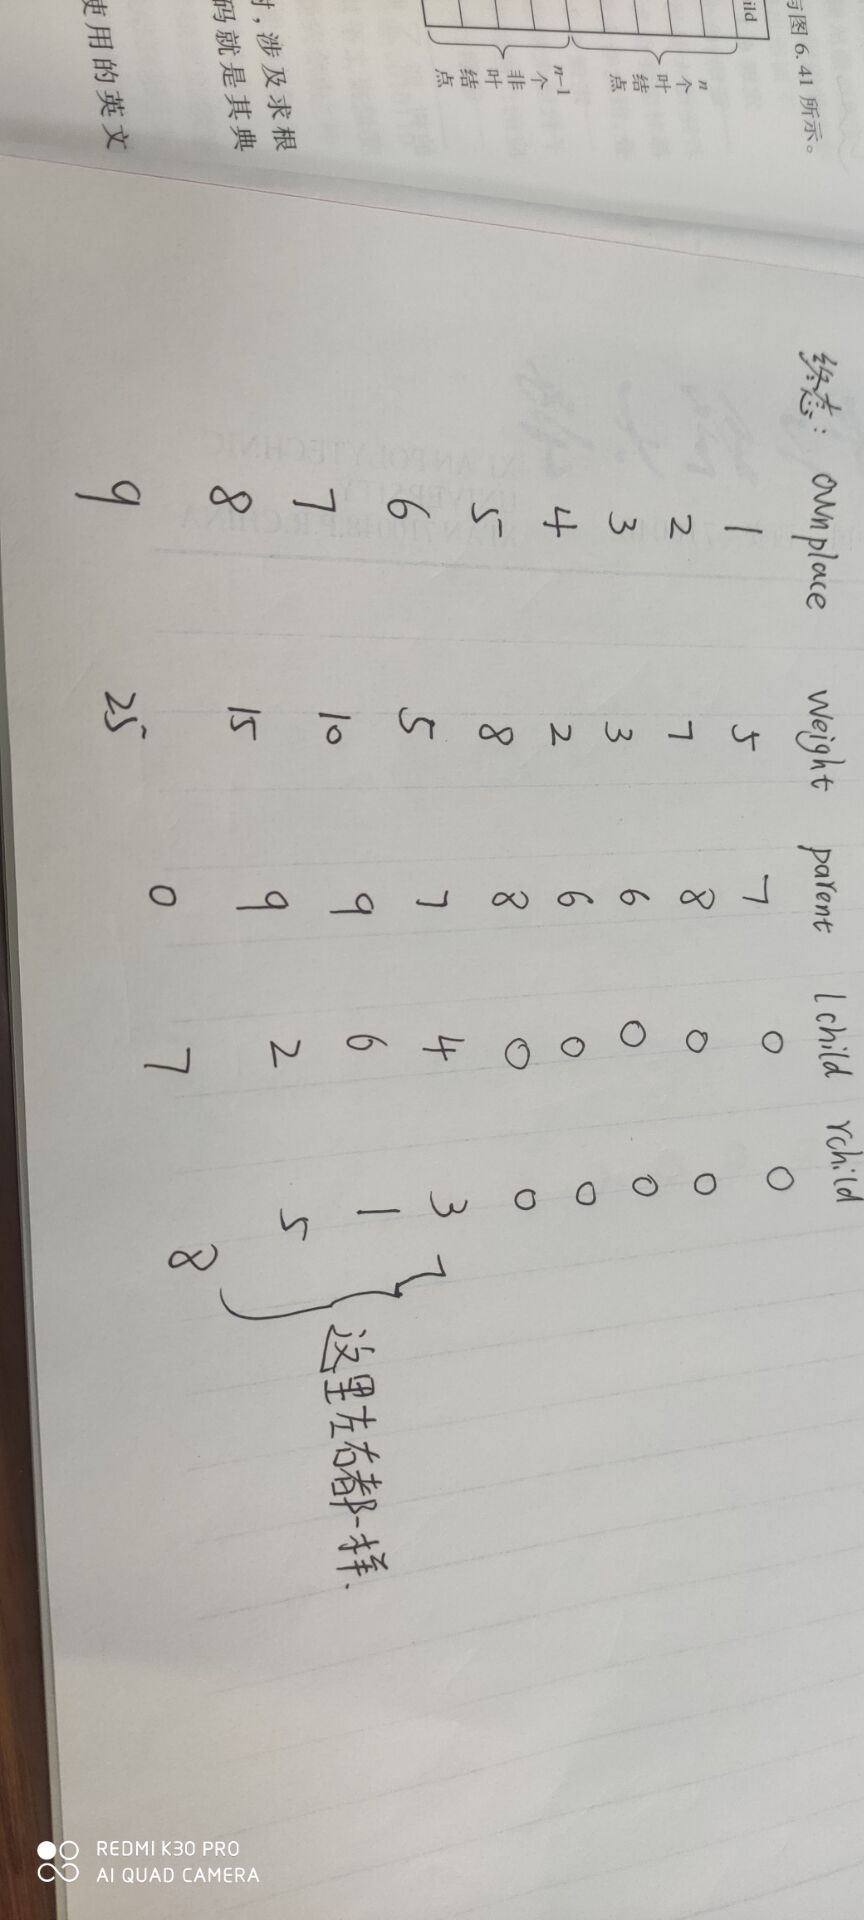 与图 6.41 所示。
ild
n个叶结点
n-1个非叶结点
时,涉及求根
码就是其典
使用的英文
XI'AN POLYTECHNIC
UNIVERSITY
终态: ownplace weight parent lchild rchild
1 5 7 0 0
2 7 8 0 0
3 3 6 0 0
4 2 6 0 0
5 8 8 0 0
6 5 7 4 3
7 10 9 6 1
8 15 9 2 5
9 25 0 7 8
这里左右都一样.
REDMI K30 PRO
AI QUAD CAMERA